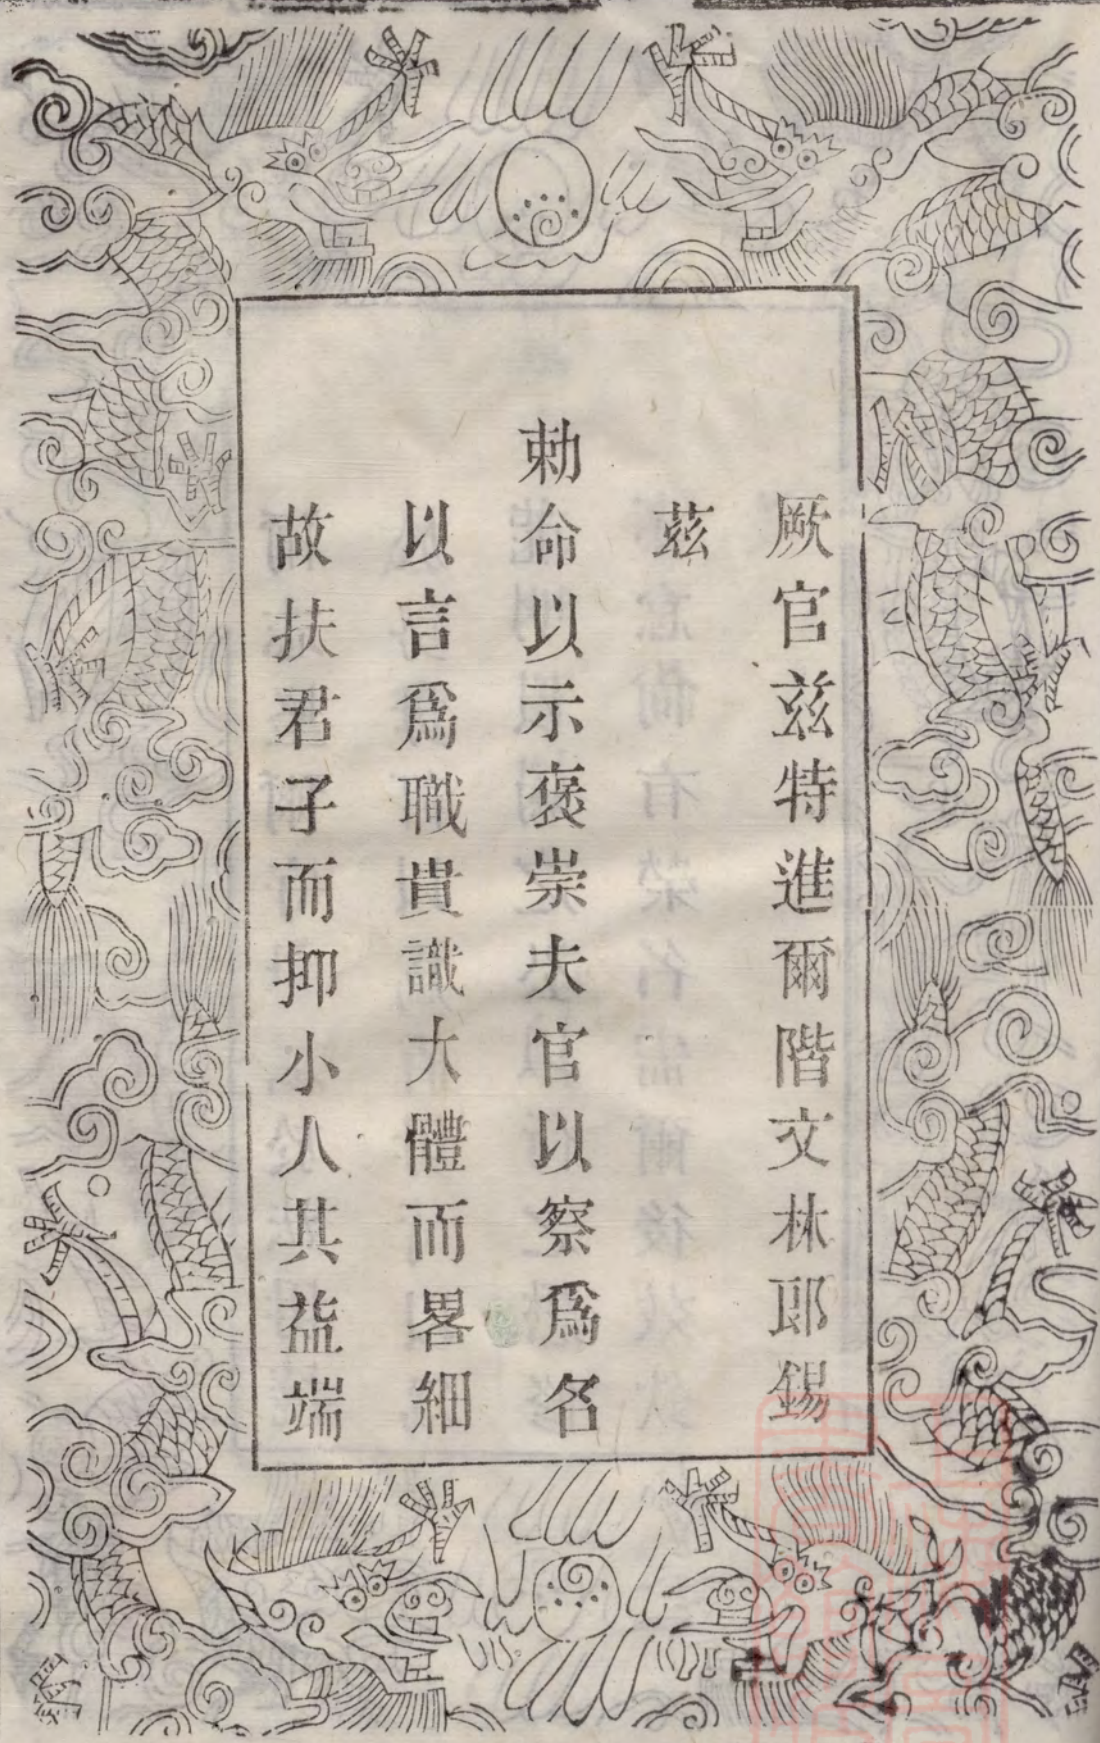 厥官茲特進爾階文林郎錫
茲
勅命以示褒崇夫官以察爲名
以言爲職貴識大體而畧細
故扶君子而抑小人共益端